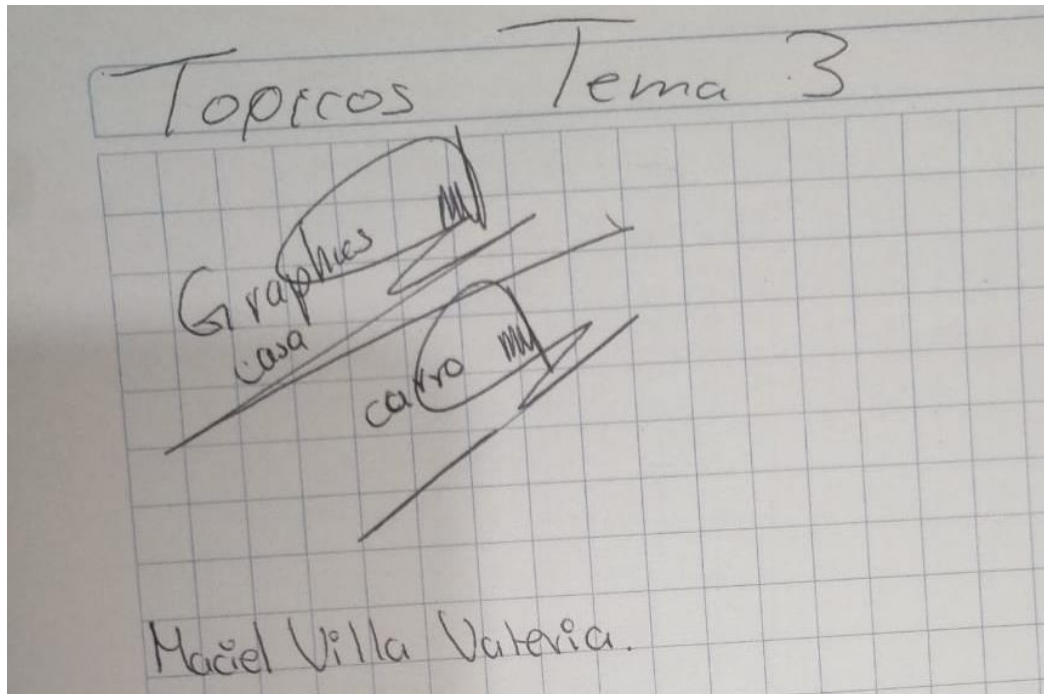 Topicos Tema 3
Graphics
casa
carro
Maciel Villa Valeria.